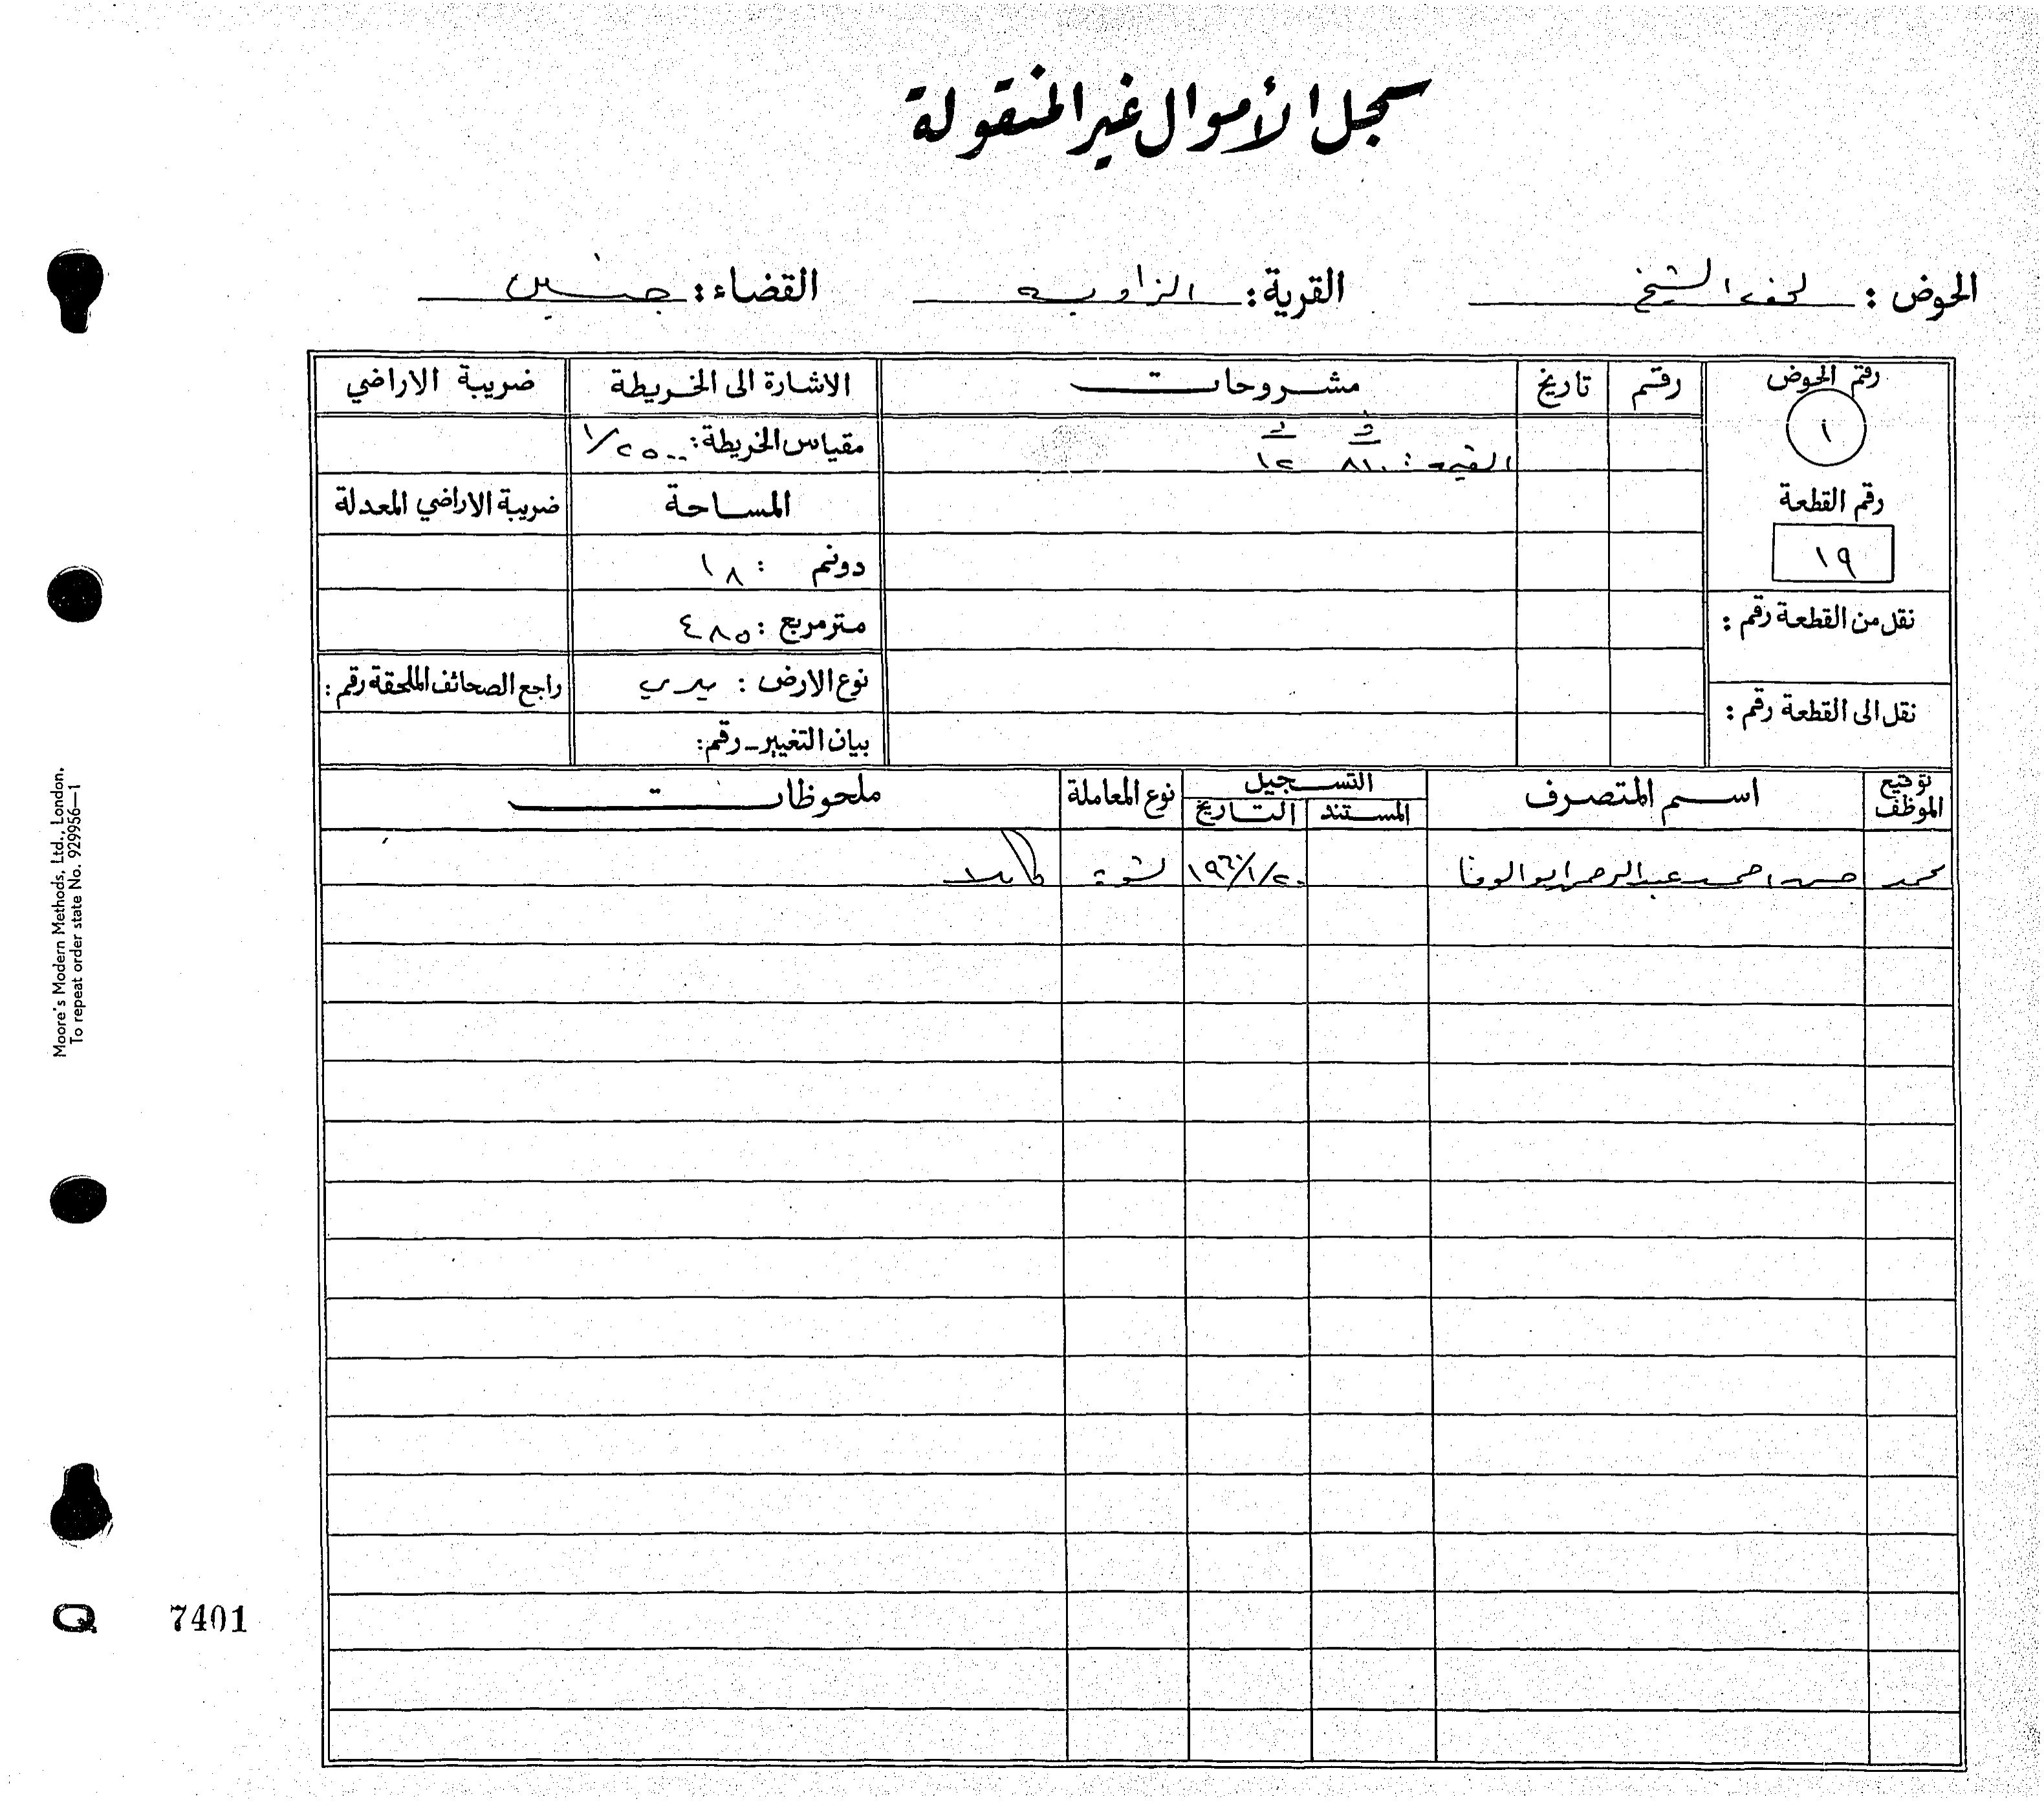 سجل الأموال غير المنقولة
الحوض : لحف الشيخ القرية : الزاويه القضاء : جنين
رقم الحوض رقم تاريخ مشروحات الاشارة الى الخريطة ضريبة الاراضي
١
القيمة : ٨١٠ ١٢
مقياس الخريطة : ١/٢٥٠٠
رقم القطعة
المساحة ضريبة الاراضي المعدلة
١٩
دونم : ١٨
نقل من القطعة رقم :
متر مربع : ٤٨٥
نوع الارض : ميري راجع الصحائف الملحقة رقم :
نقل الى القطعة رقم :
بيان التغيير - رقم :
توقيع الموظف اسم المتصرف التسجيل نوع المعاملة ملحوظات
المستند التاريخ
محمد حسن احمد عبد الرحمن ابو الوفا ١٩٦٠/١/٢٠ تسوية كاملا
Moore's Modern Methods, Ltd., London.
To repeat order state No. 929956—1
Q 7401